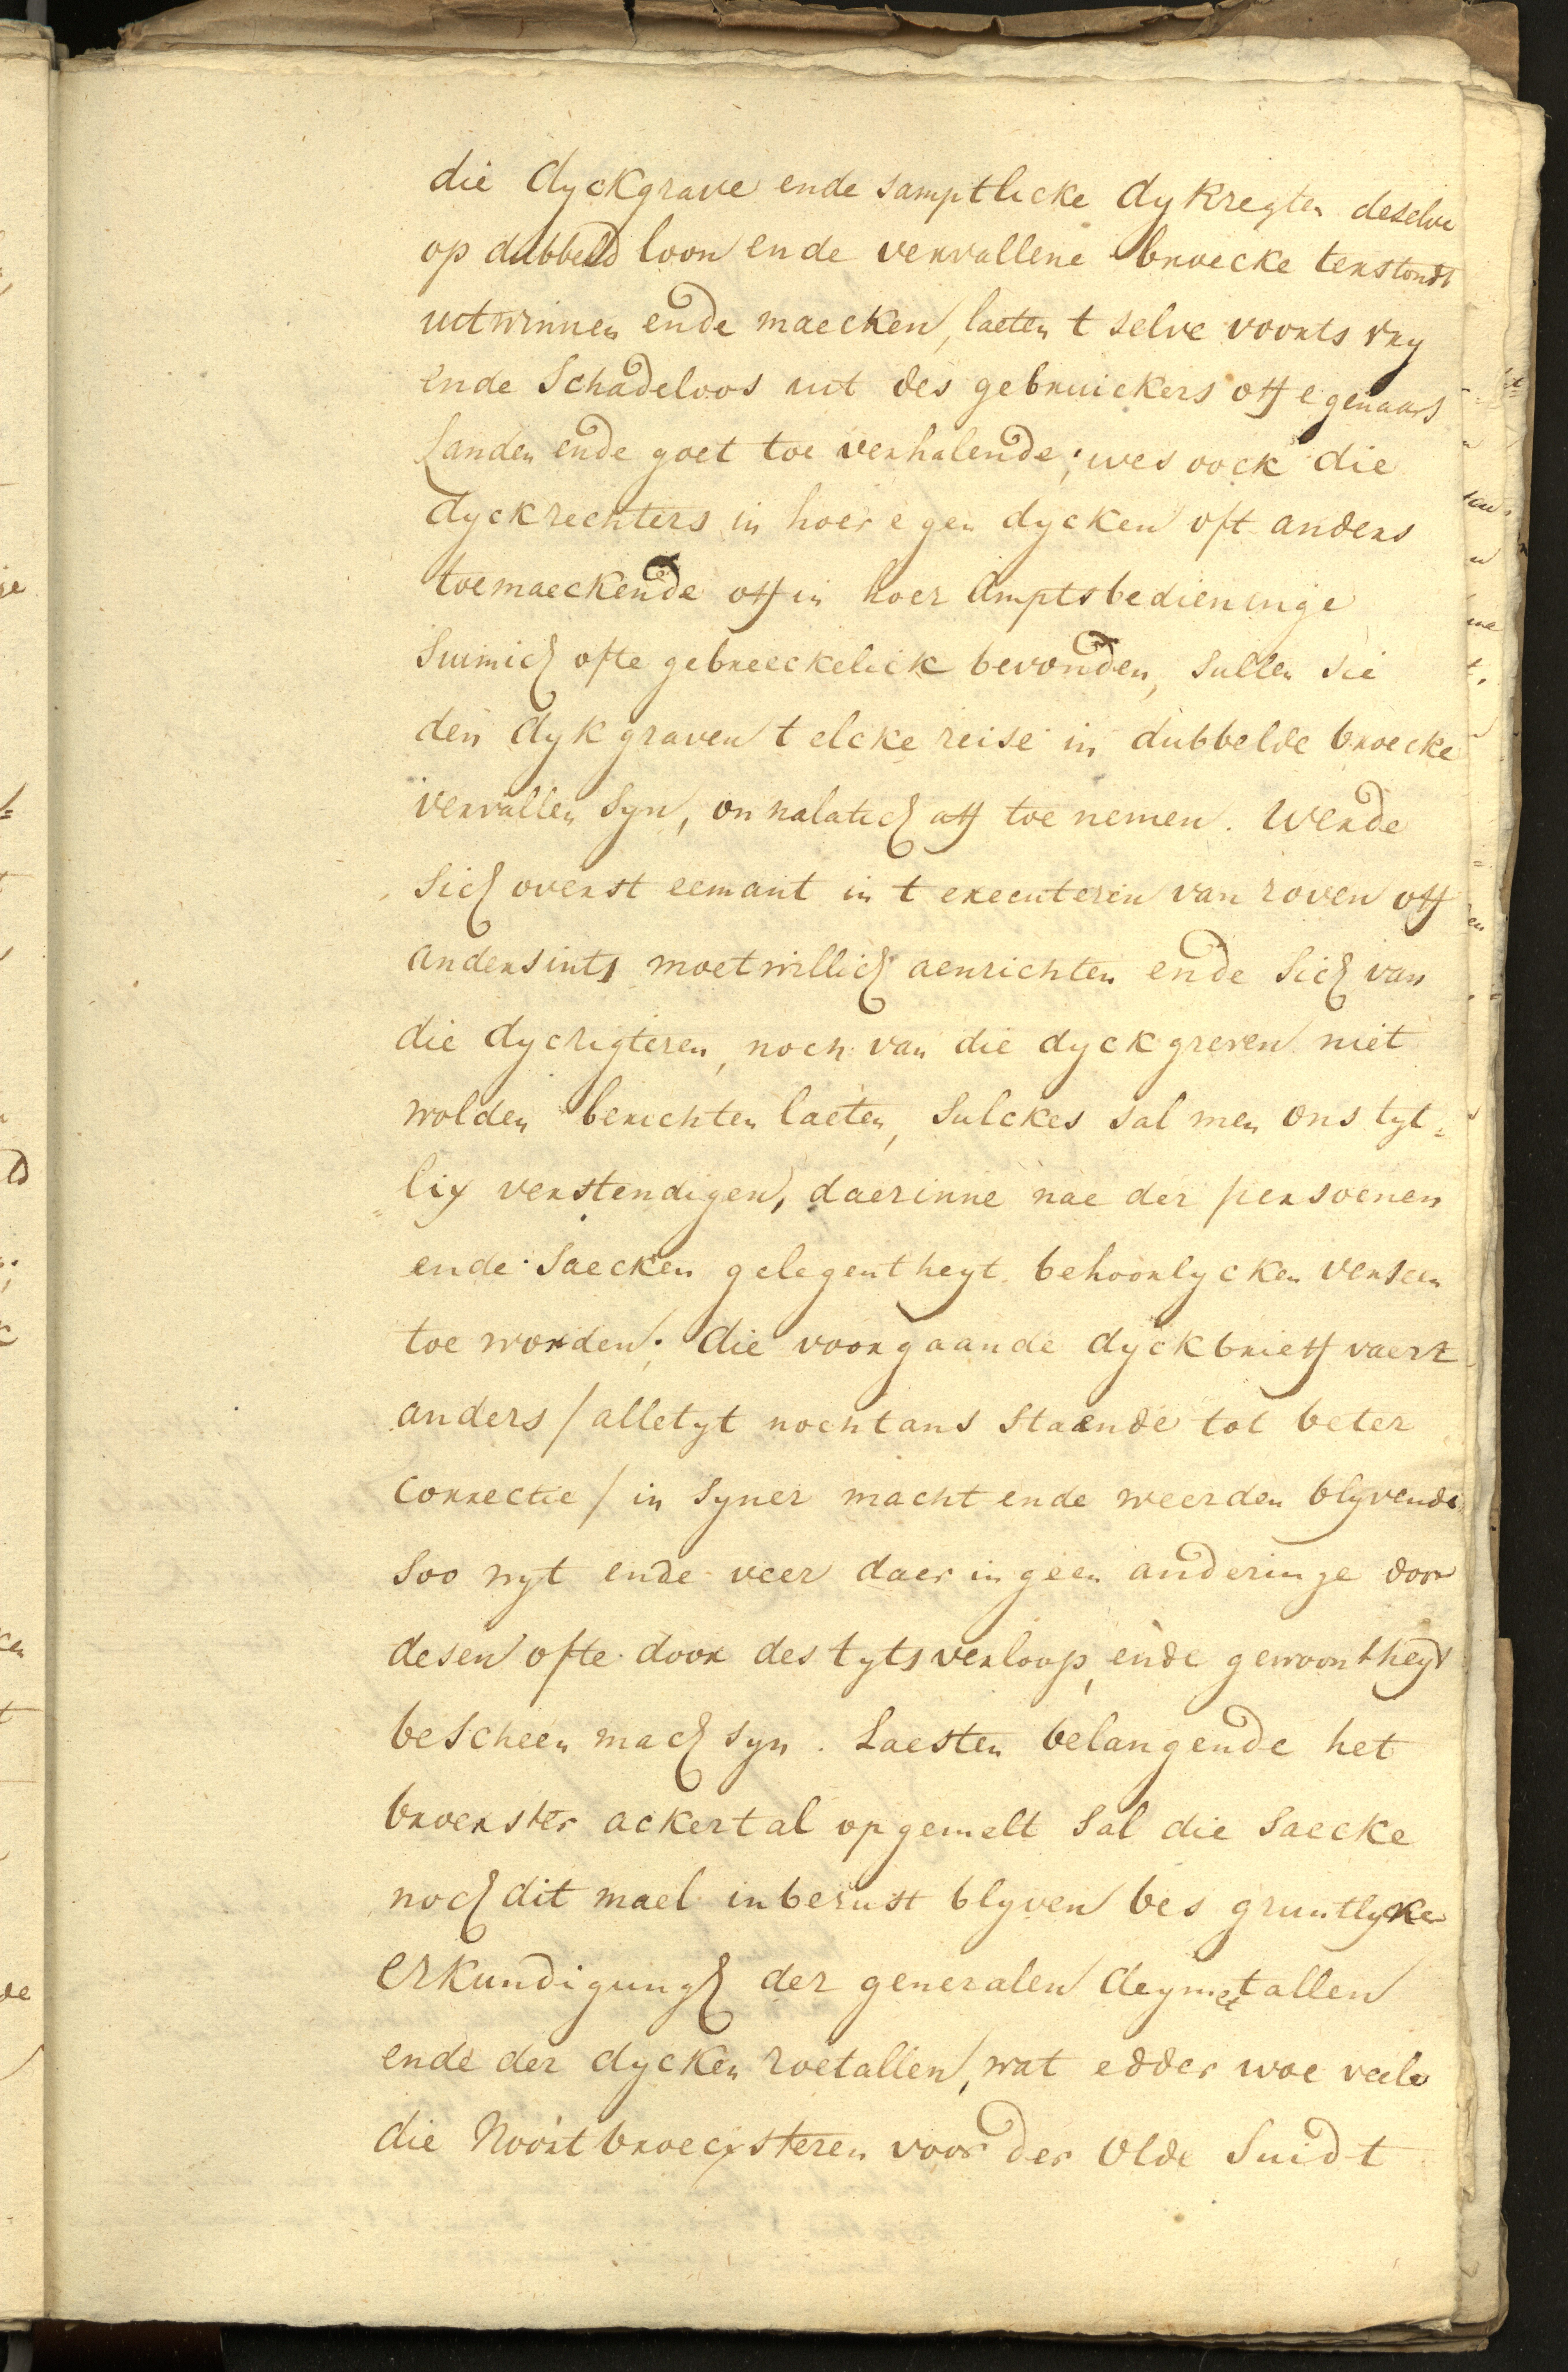 die dyckgrave ende samptlicke dykregten deselve
op dubbeld loon ende vervallene broecke terstondt
uitwinnen ende maecken, laeten t selve voorts vry
ende Schadeloos uut des gebruickers off egenaars
Landen ende goet toe verhalende; wes oock die
dyckrechters in hoer egen dycken oft anders
toemaeckende off in hoer Amptsbedieninge
Suimich ofte gebreeckelick bevonden, sullen sie
den dykgraven t elcke reise in dubbelde broecke
vervallen Syn, onnalatich aff toe nemen. Werde
Sich overst eemant in t executeren van roven off
andersints moetwillich aenrichten ende Sich van
die dycrigteren, noch van die dyckgreven niet
wolden berichten laeten, Sulckes sal men ons tyt=
=lix verstendigen, daerinne nae der persoenen
ende Saecken gelegentheyt behoorlycken versein
toe worden; die voorgaande dyckbrieff vaerr
anders / alletyt nochtans staende tot beter
correctie / in Syner macht ende weerden blyvende
Soo wyt ende veer daer in geen anderinge door
desen ofte door des tyts verloop, ende gewoontheyt
bescheen mach syn. Laesten belangende het
broerster ackertal opgemelt Sal die Saecke
noch dit mael in berust blyven bes gruntlycke
Erkundigungh der generalen deymettallen
ende der dycken roetallen, wat edder woe veele
die Noort broecxsteren voor der Olde Suidt